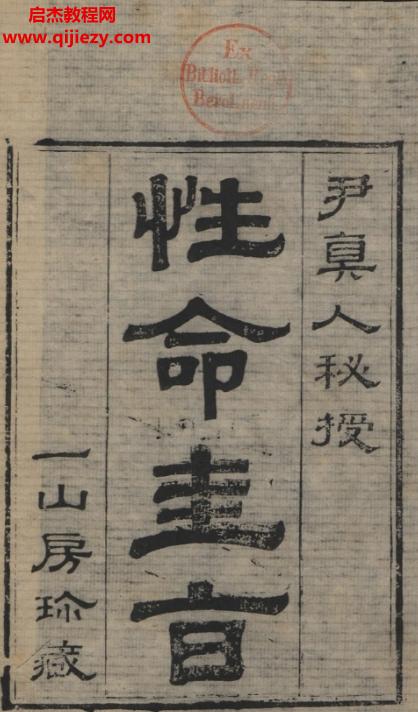 启杰教程网
www.qijiezy.com
Ex
Biblioth.
尹真人秘授
性命圭旨
一山房珎藏